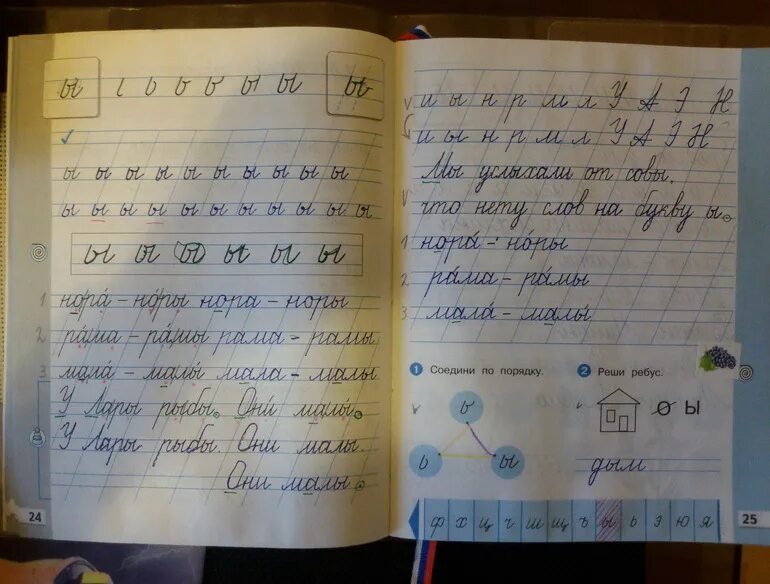 ы ι ь ь ы ы ы ы
ы ы ы ы ы ы ы ы ы ы
ы ы ы ы ы ы ы ы ы ы ы
ы ы ы ы ы ы
1 нора́ - но́ры нора - норы
2 ра́ма - ра́мы рама - рамы
3 мала́ - малы́ мала - малы
У Лары рыбы. Они́ малы́.
У Лары рыбы. Они малы.
Они малы.
24
и ы н р м л У А Э Н
и ы н р м л У А Э Н
Мы услыхали от совы,
что нету слов на букву ы.
1 нора́ - но́ры
2 ра́ма - ра́мы
3 мала́ - малы́
1 Соедини по порядку.
ъ
ь ы
2 Реши ребус.
о ы
дым
ф х ц ч ш щ ъ ы ь э ю я
25